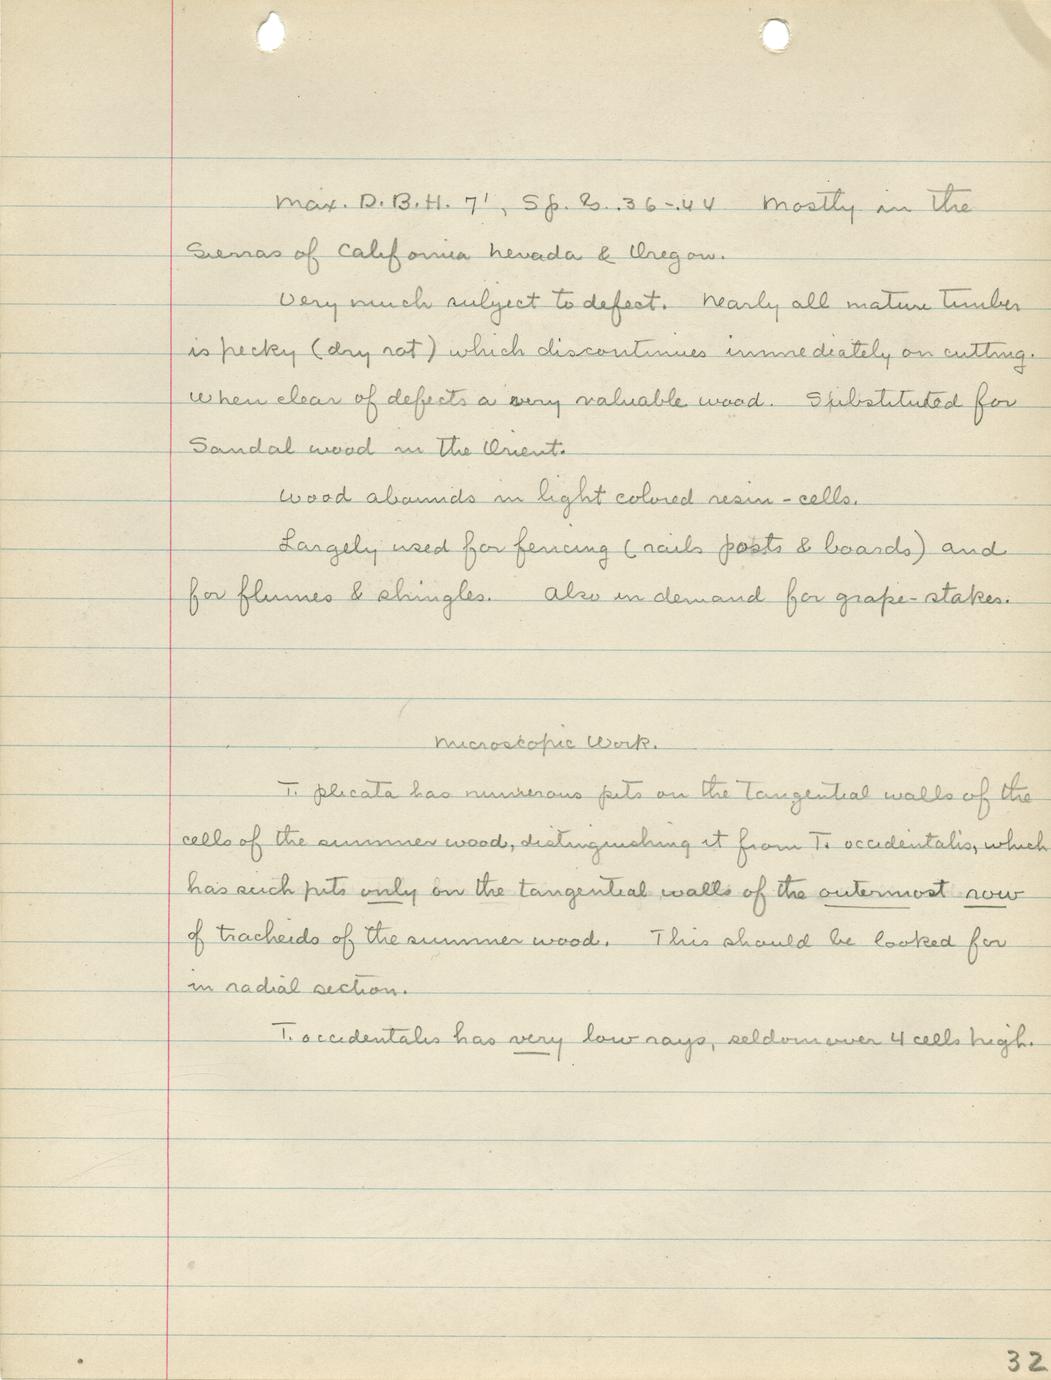 Max. D.B.H. 7', Sp. G. .36-.44 Mostly in the
Sierras of California Nevada & Oregon.
Very much subject to defect. Nearly all mature timber
is pecky (dry rot) which discontinues immediately on cutting.
When clear of defects a very valuable wood. Substituted for
Sandal wood in the Orient.
Wood abounds in light colored resin-cells.
Largely used for fencing (rails posts & boards) and
for flumes & shingles. Also in demand for grape-stakes.
Microscopic Work.
T. plicata has numerous pits on the tangential walls of the
cells of the summer wood, distinguishing it from T. occidentalis, which
has such pits only on the tangential walls of the outermost row
of tracheids of the summer wood. This should be looked for
in radial section.
T. occidentalis has very low rays, seldom over 4 cells high.
32